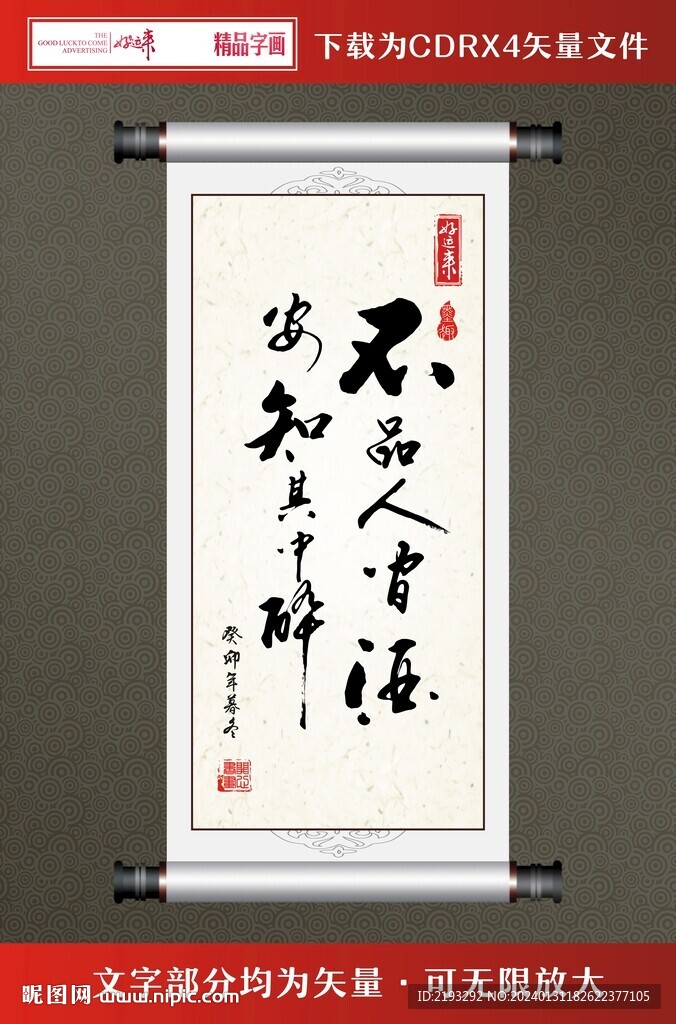 THE
GOOD LUCKTO COME
ADVERTISING
好运来
精品字画
下载为CDRX4矢量文件
好运来
墨趣
不品人间酒
安知其中醉
癸卯年暮冬
文字部分均为矢量·可无限放大
昵图网 www.nipic.com
ID:2193292 NO:20240131182622377105